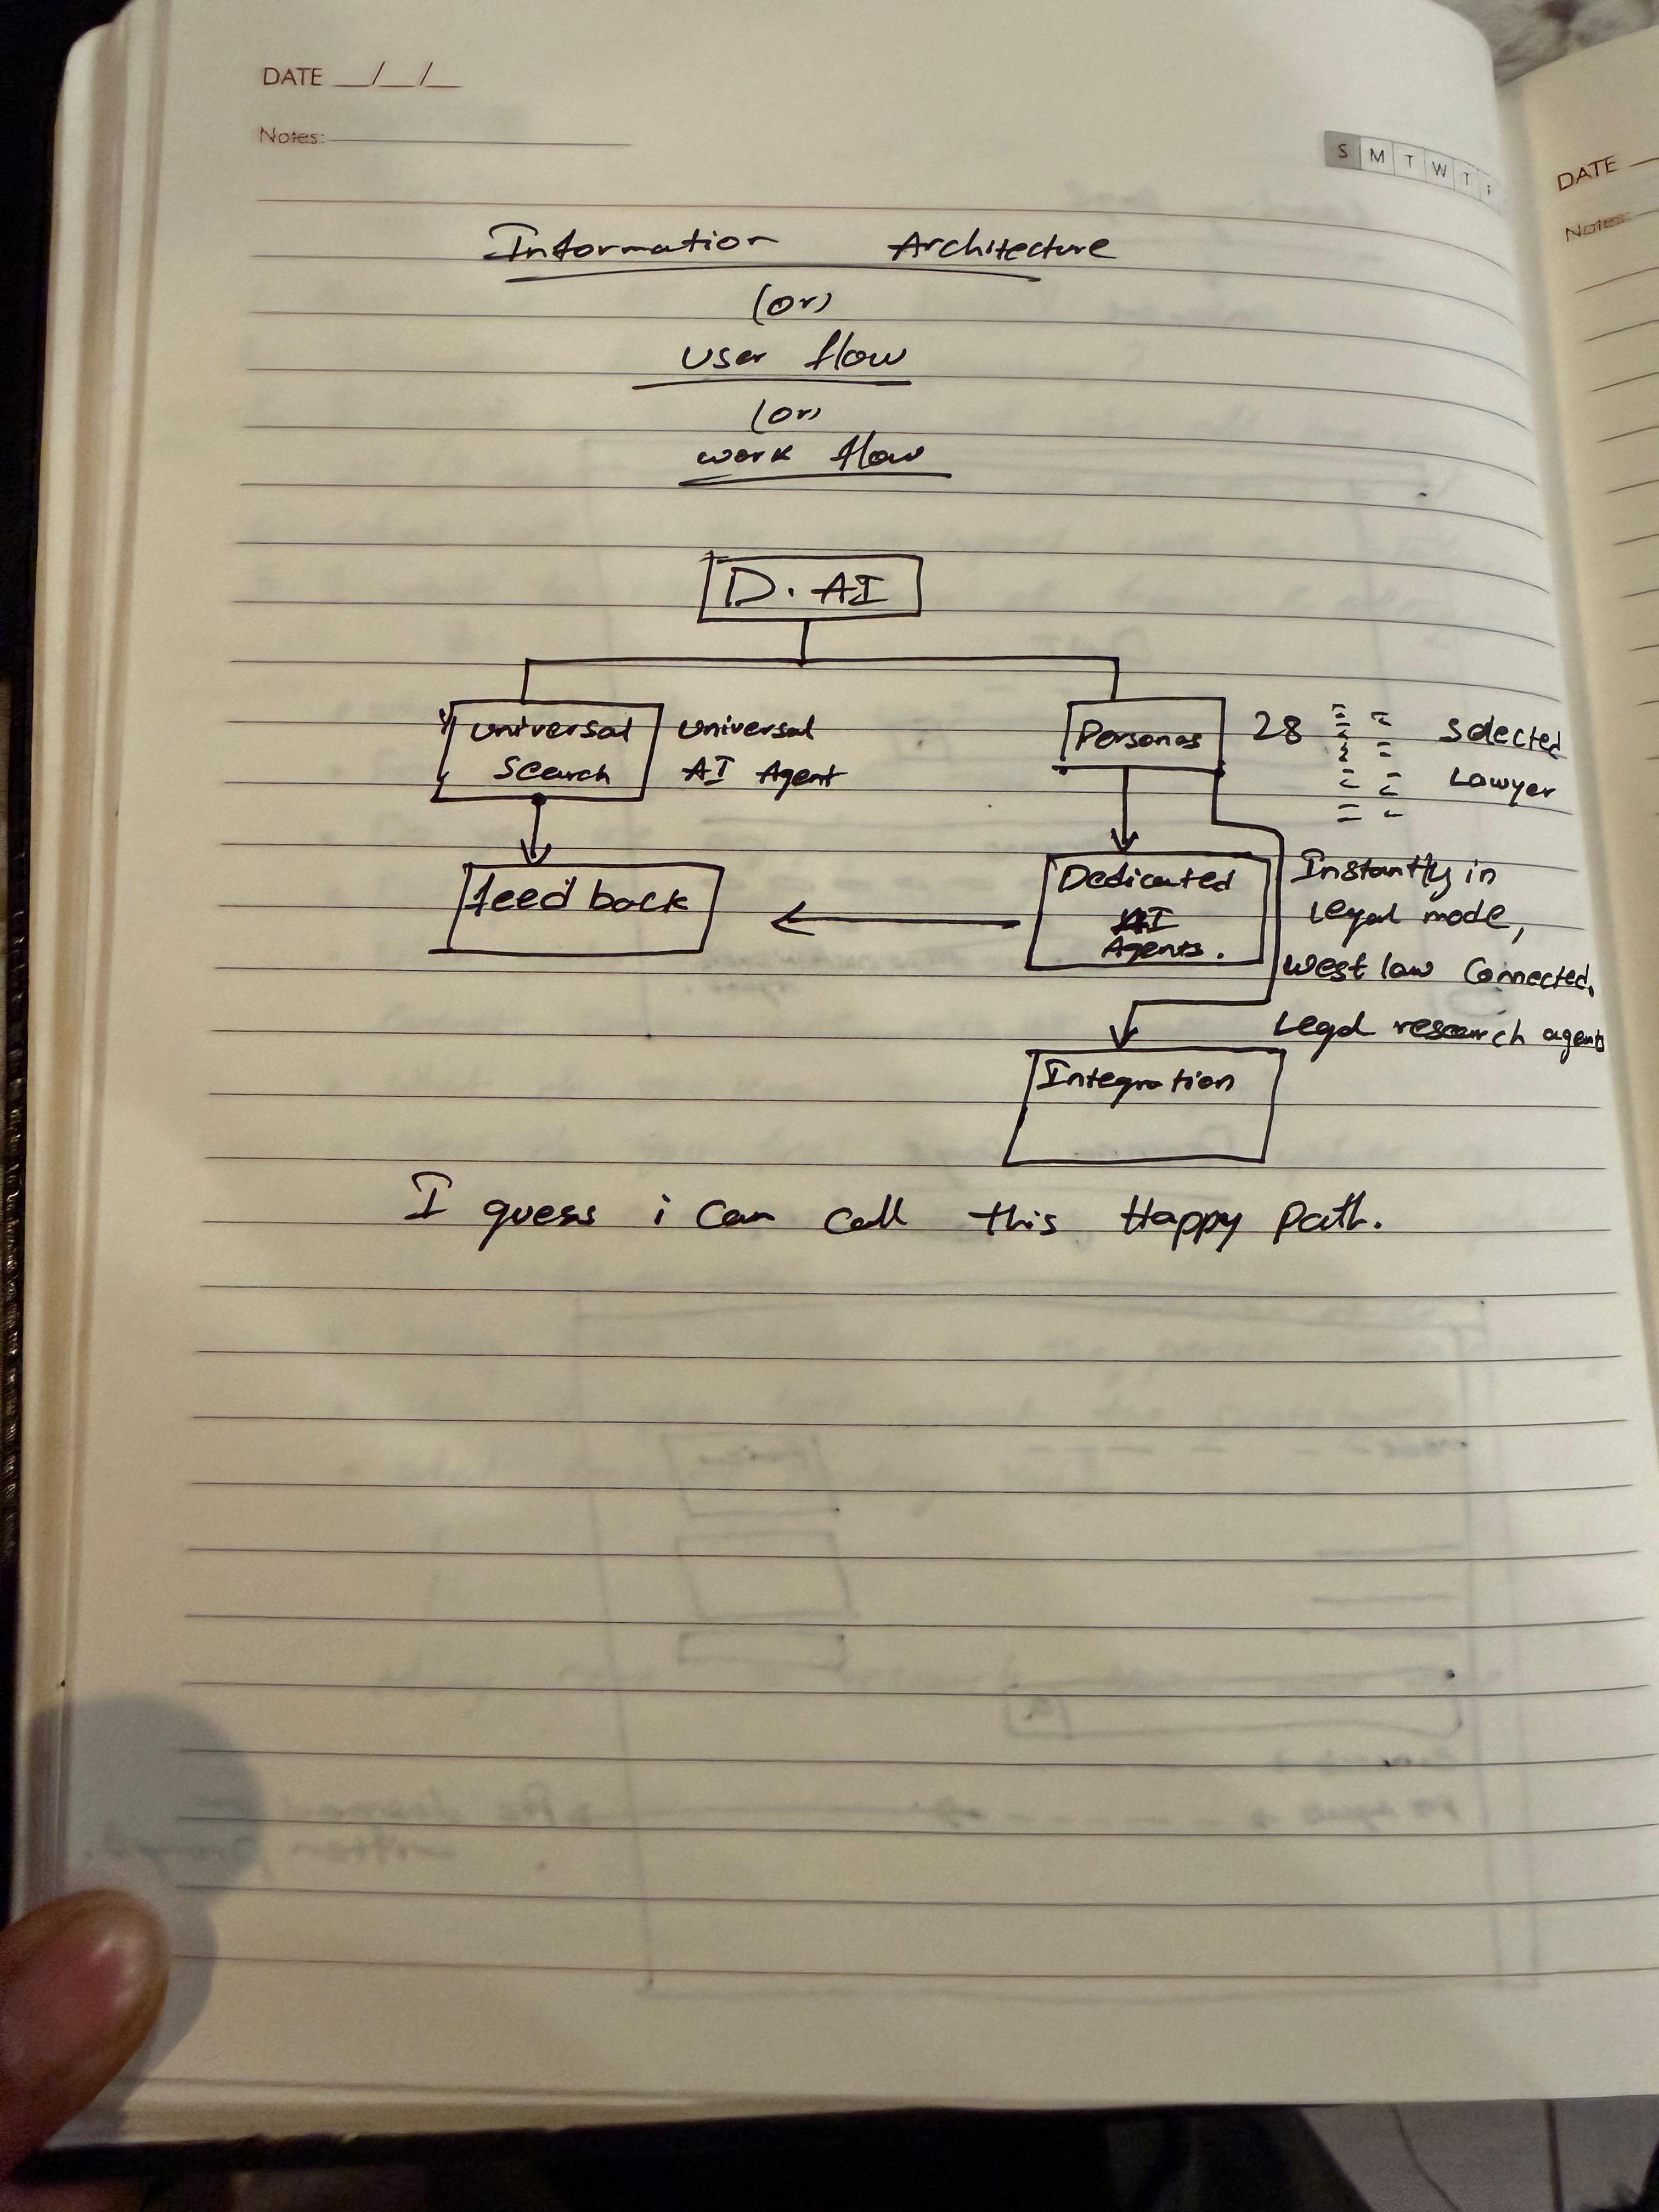 DATE __/__/__
Notes:
S M T W T F
DATE
Notes
Information Architecture
(or)
User flow
(or)
work flow
D. AI
Universal Search
Universal AI Agent
Personas
28
Selected Lawyer
feed back
Dedicated AI Agents.
Instantly in
Legal mode,
West law Connected,
Legal research agents
Integration
I guess i can call this Happy Path.